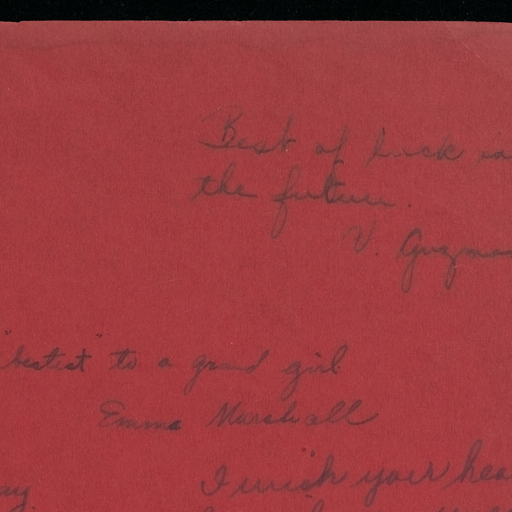 Best of luck in
the future.
V. Guzman
"bestest" to a grand girl
Emma Marshall
I wish your